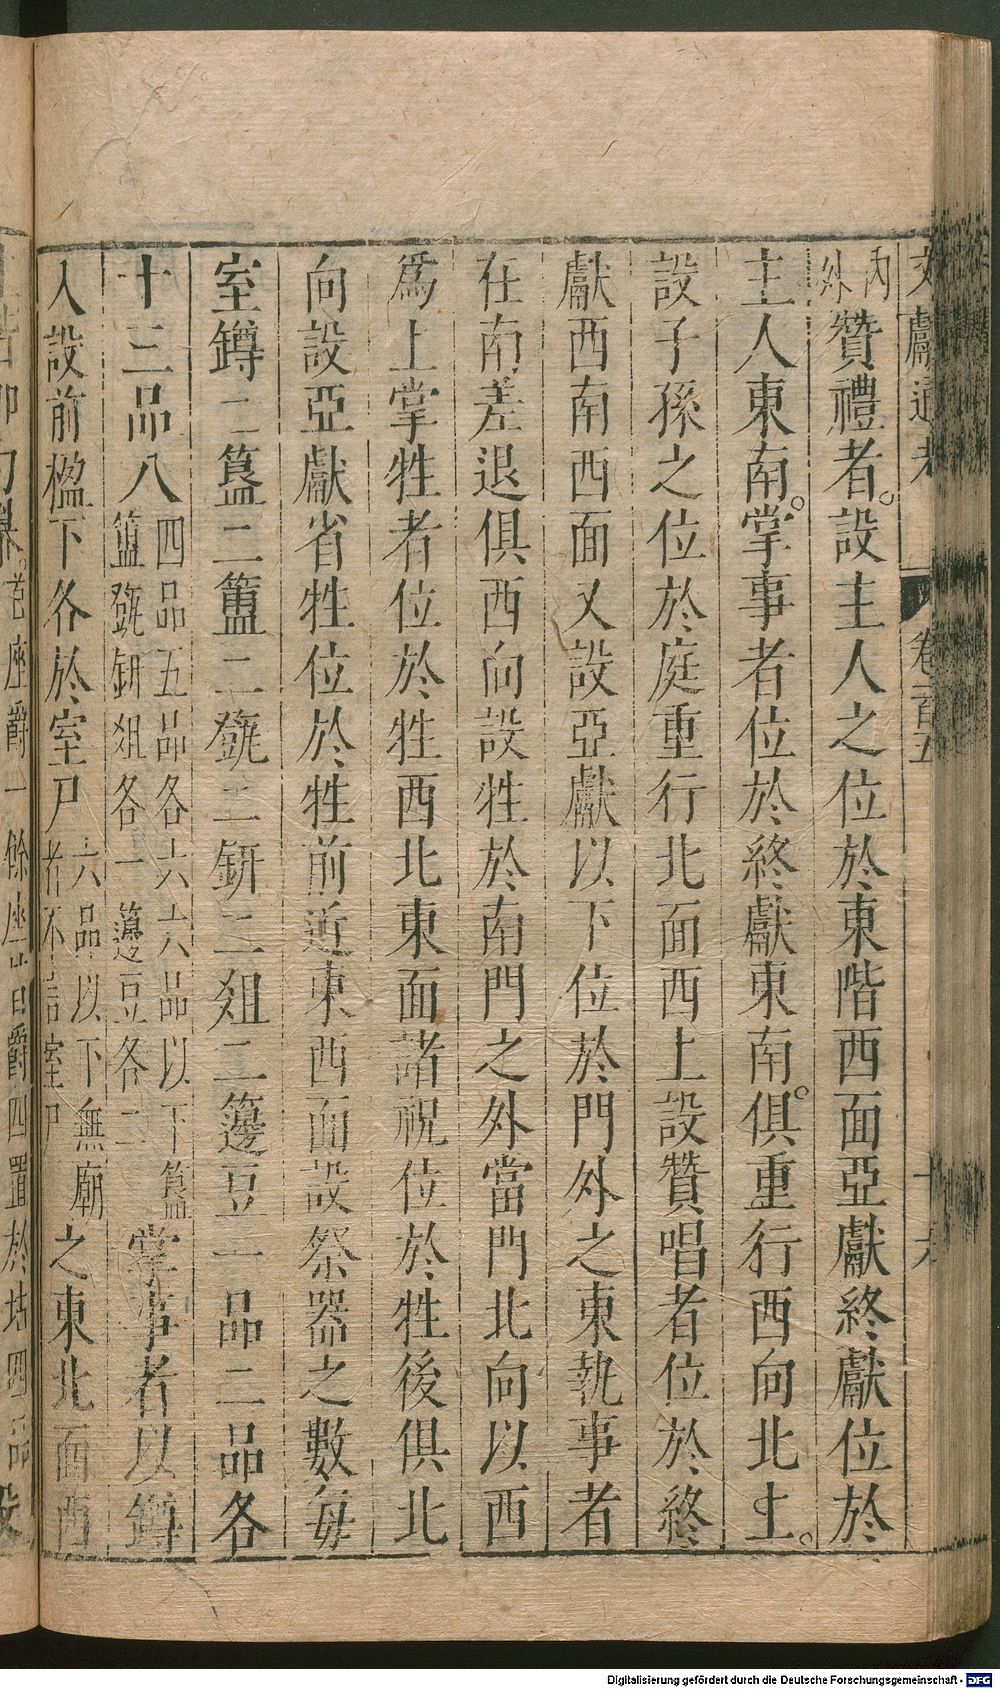 文獻通考 卷一百五
內外贊禮者設主人之位於東階西面亞獻終獻位於
主人東南掌事者位於終獻東南俱重行西向北上
設子孫之位於庭重行北面西上設贊唱者位於終
獻西南西面又設亞獻以下位於門外之東執事者
在南差退俱西向設牲於南門之外當門北向以西
為上掌牲者位於牲西北東面諸祝位於牲後俱北
向設亞獻省牲位於牲前近東西面設祭器之數每
室罇二簋二簠二㽅二鉶二俎二籩豆一品二品各
十三品八四品五品各六六品以下簋簠㽅鉶俎各一籩豆各二掌事者以罇
入設前楹下各於室戶六品以下無廟者不言室戶之東北面西
座爵一餘座皆爵四置於坫四品設
Digitalisierung gefördert durch die Deutsche Forschungsgemeinschaft - DFG